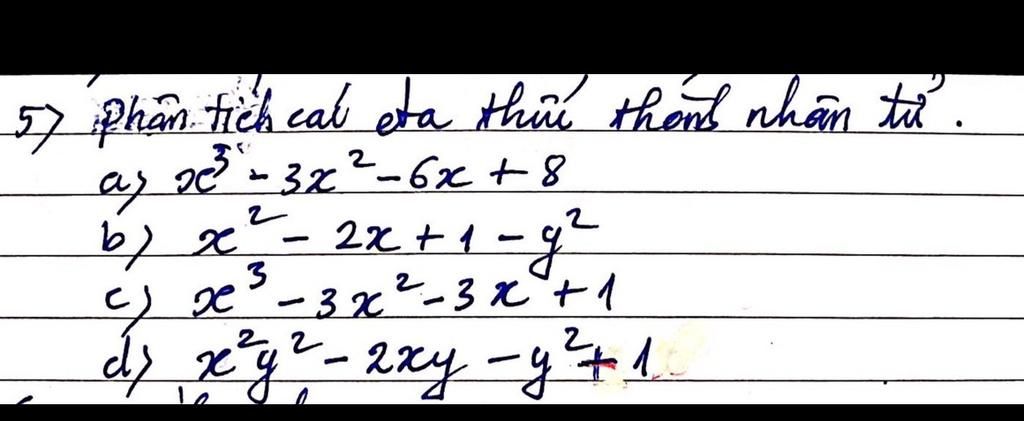 5) Phân tích các đa thức thành nhân tử.
a) x³ - 3x² - 6x + 8
b) x² - 2x + 1 - y²
c) x³ - 3x² - 3x + 1
d) x²y² - 2xy - y² + 1